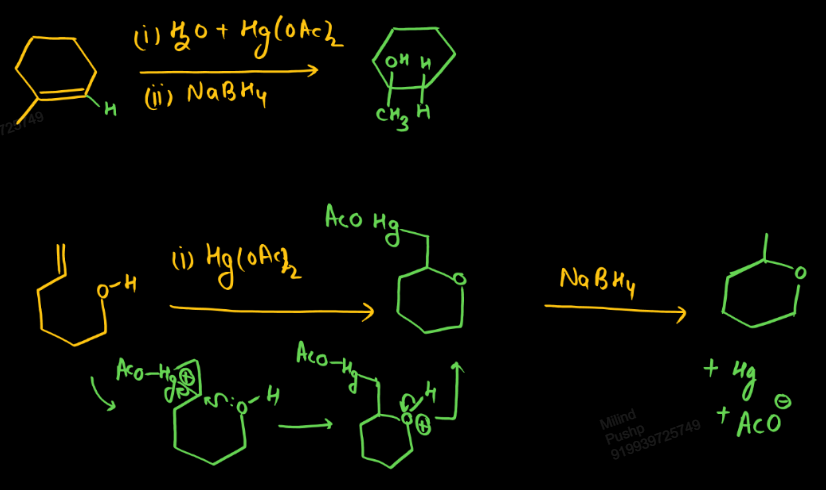 (i) H₂O + Hg(OAc)₂
(ii) NaBH₄
OH H
H
CH₃ H
723749
AcO Hg
O
O-H
(i) Hg(OAc)₂
NaBH₄
O
AcO-Hg ⊕
O-H
AcO-Hg
H
O ⊕
+ Hg
+ AcO⊖
Milind
Pushp
919939725749